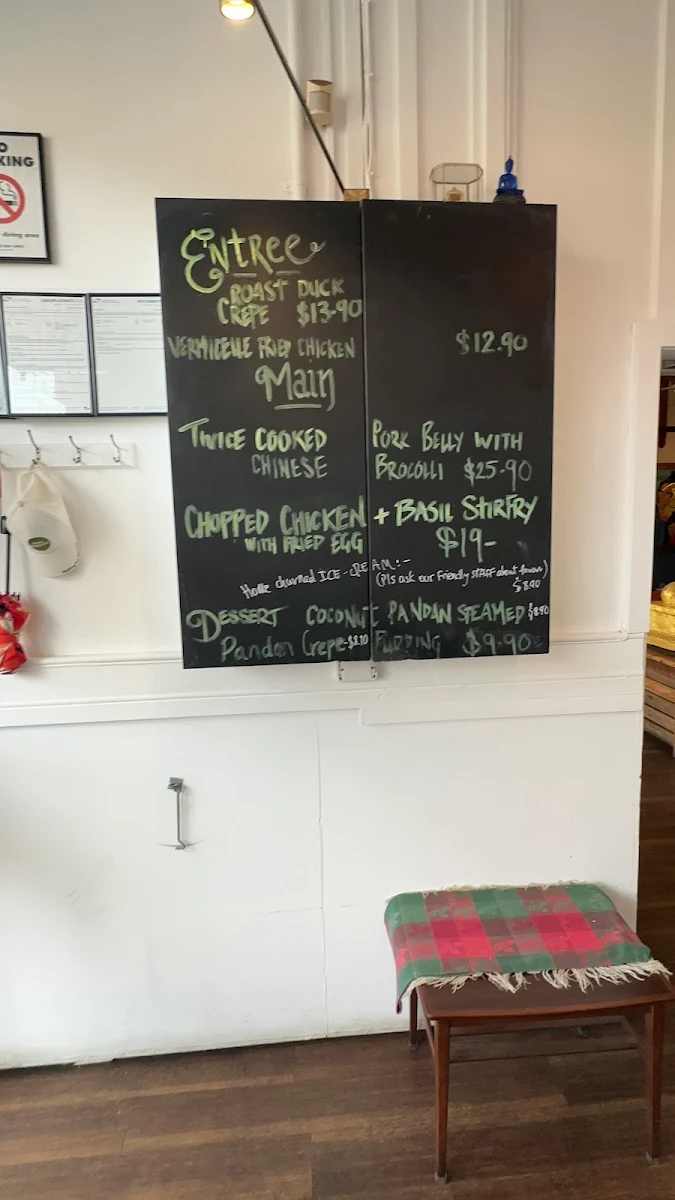 KING
dining area
Entree
ROAST DUCK
CREPE $13-90
VERMICELLE FRIED CHICKEN $12.90
Main
TWICE COOKED PORK BELLY WITH
CHINESE BROCOLLI $25-90
CHOPPED CHICKEN + BASIL STIRFRY
WITH FRIED EGG $19-
Home churned ICE-CREAM:-
(Pls ask our friendly STAFF about flavours)
$8.90
DESSERT COCONUT PANDAN STEAMED $8.90
Pandan Crepe- PUDDING $9.90